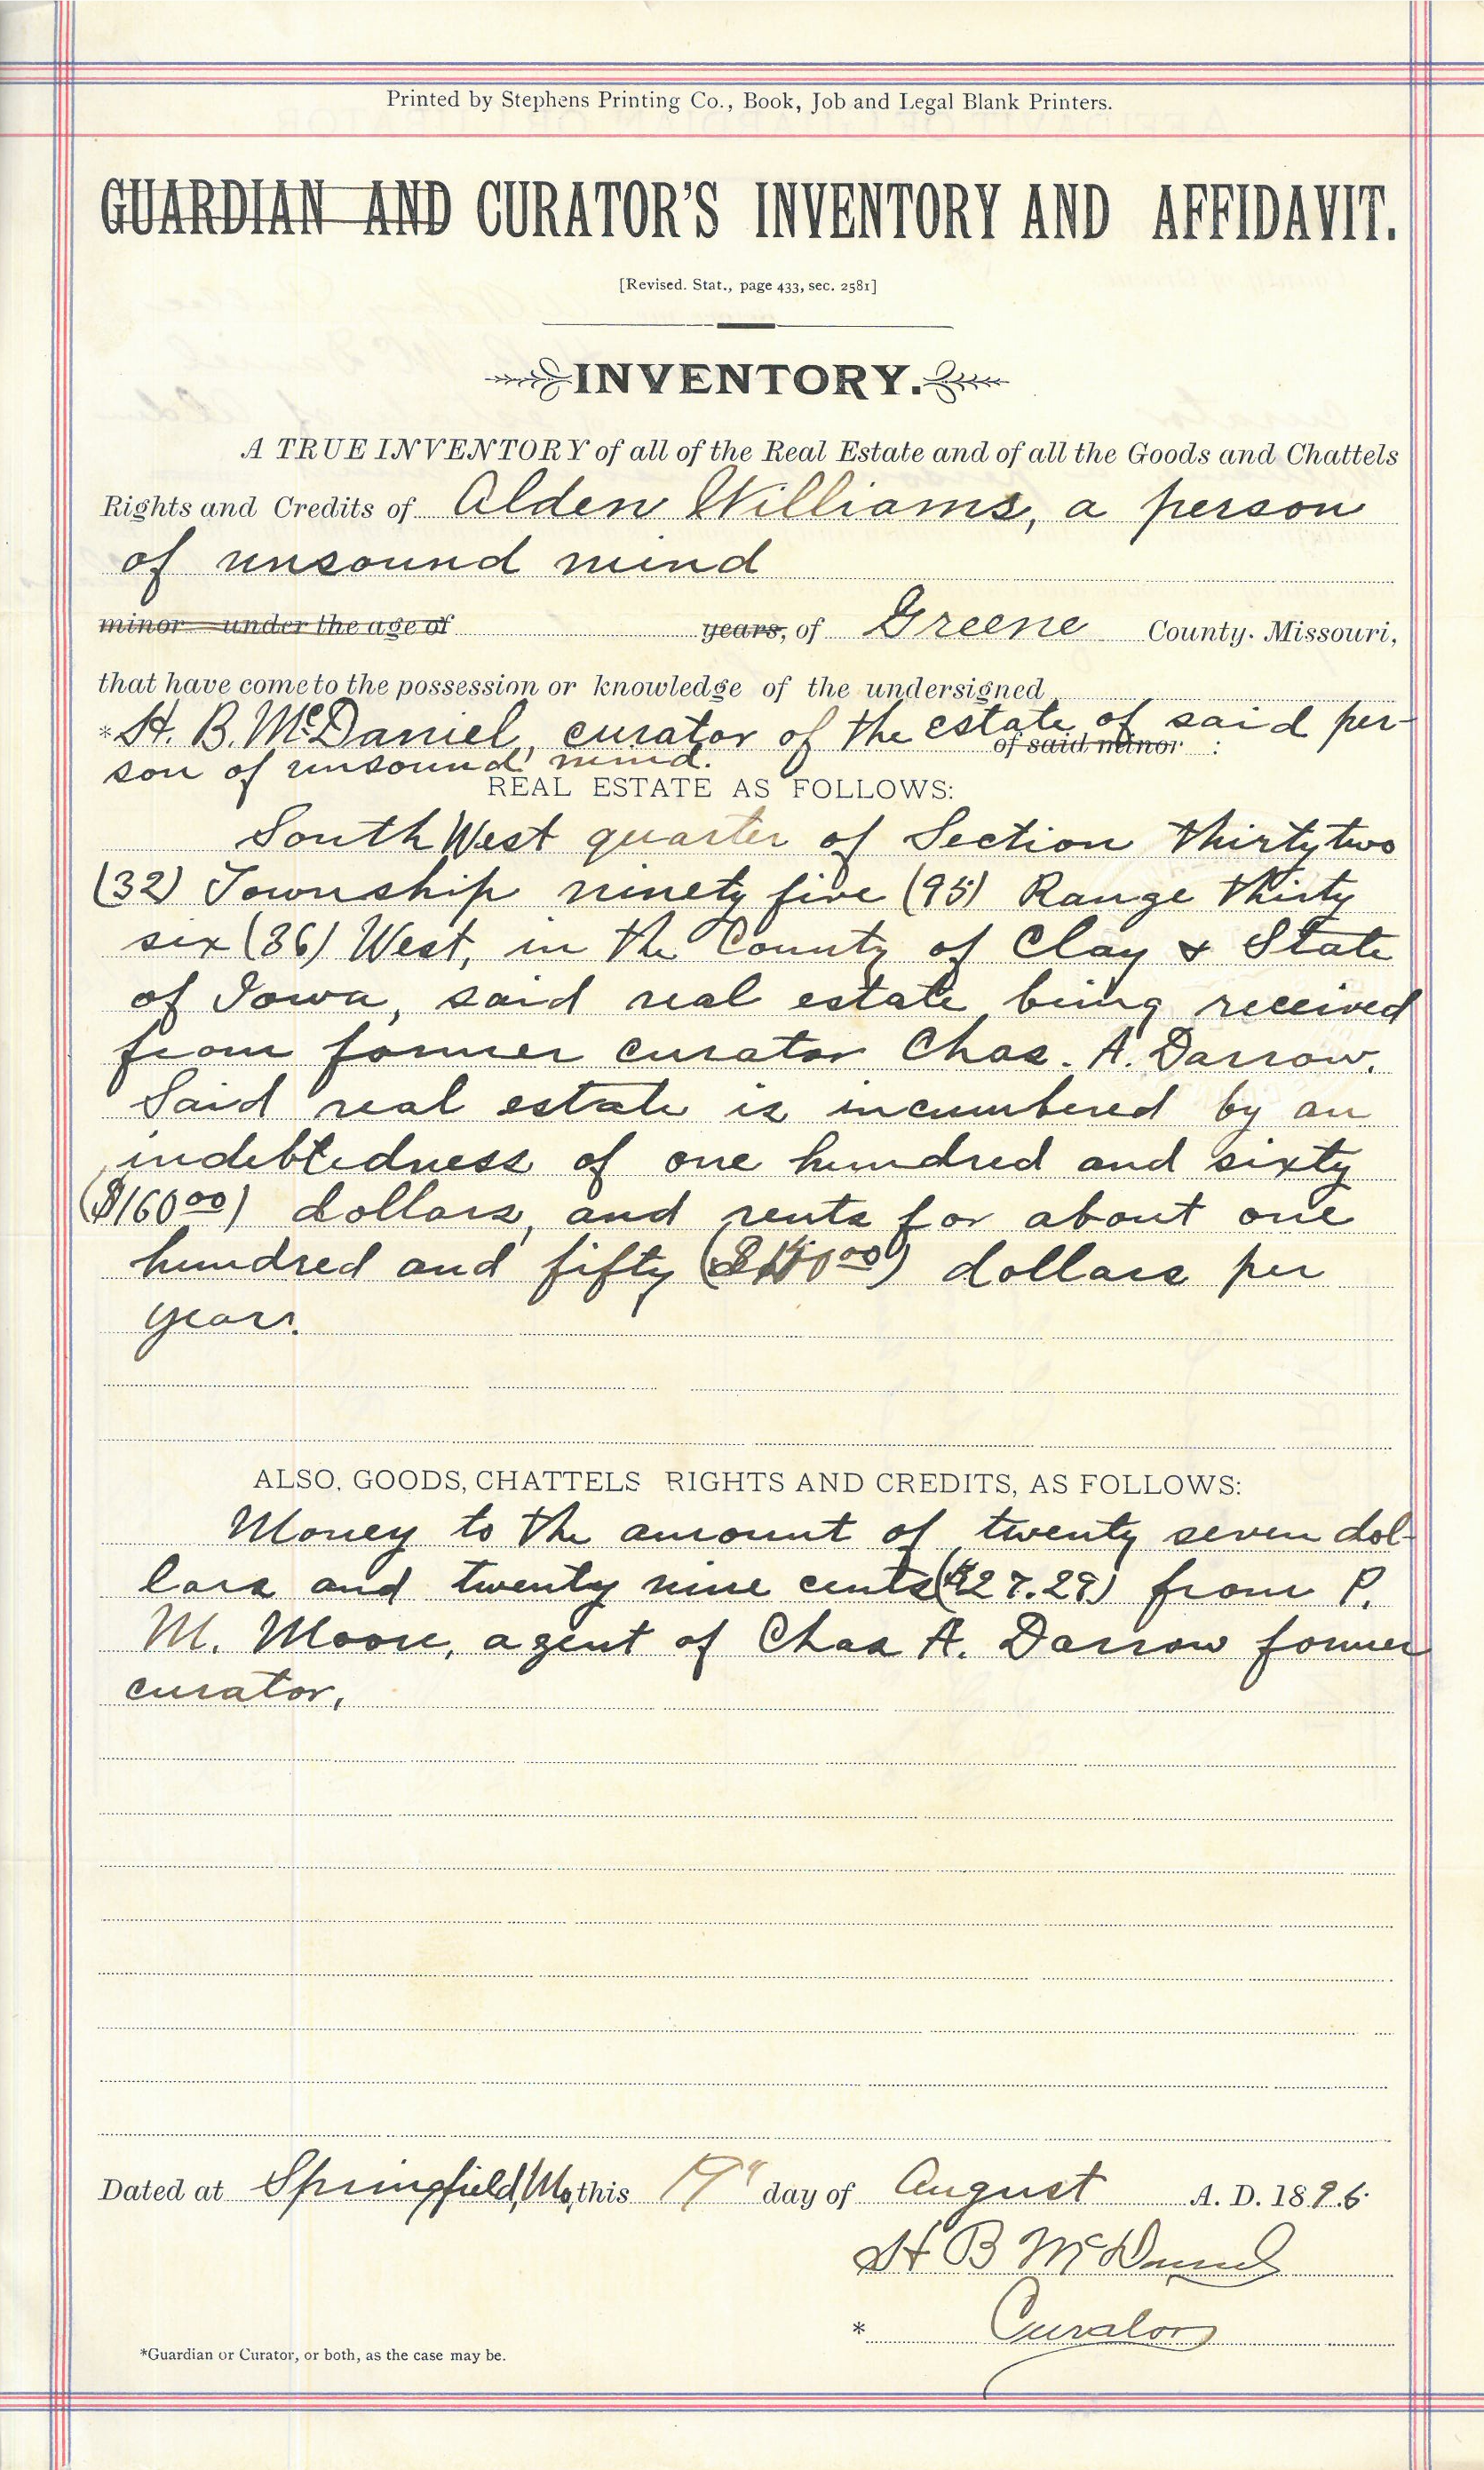 Printed by Stephens Printing Co., Book, Job and Legal Blank Printers.
GUARDIAN AND CURATOR'S INVENTORY AND AFFIDAVIT.
[Revised. Stat., page 433, sec. 2581]
INVENTORY.
A TRUE INVENTORY of all of the Real Estate and of all the Goods and Chattels
Rights and Credits of Alden Williams, a person
of unsound mind
minor under the age of years, of Greene County. Missouri,
that have come to the possession or knowledge of the undersigned
*H. B. McDaniel, curator of the estate of said per-
of said minor :
son of unsound mind.
REAL ESTATE AS FOLLOWS:
South West quarter of Section thirty two
(32) Township ninety five (95) Range thirty
six (36) West, in the County of Clay & State
of Iowa, said real estate being received
from former curator Chas. A. Darrow.
Said real estate is incumbered by an
indebtedness of one hundred and sixty
($160 00) dollars, and rents for about one
hundred and fifty dollars per
year.
ALSO, GOODS, CHATTELS RIGHTS AND CREDITS, AS FOLLOWS:
Money to the amount of twenty seven dol-
lars and twenty nine cents ($27.29) from P.
M. Moore, agent of Chas A. Darrow former
curator,
Dated at Springfield, Mo, this day of August A. D. 1896
H B McDaniel
* Curator
*Guardian or Curator, or both, as the case may be.